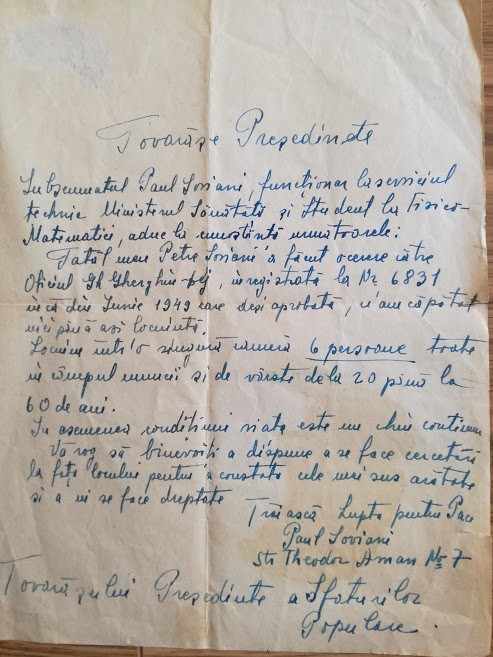 Tovarășe Președinte
Subsemnatul Paul Soviani, funcționar la serviciul
technic Ministerul Sănătăță și Student la Fizico-
Matematici, aduc la cunoștință următoarele:
Tatăl meu Petre Soviani a făcut cerere către
Oficiul Gh Gherghiu-Dej, înregistrată la Nr 6831
încă din Iunie 1949 care deși aprobată, n'am căpătat
nici pînă azi locuință.
Locuim într'o singură cameră 6 persoane toate
în cîmpul muncii și de vîrste de la 20 pînă la
60 de ani.
In asemenea condițiuni viața este un chin continuu
Vă rog să binevoiți a dispune a se face cercetări
la fața locului pentru a constata cele mai sus arătate
și a ni se face dreptate
Trăiască Lupta pentru Pace
Paul Soviani
Str Theodor Aman Nr 7
Tovarășului Președinte a Sfaturilor
Populare.